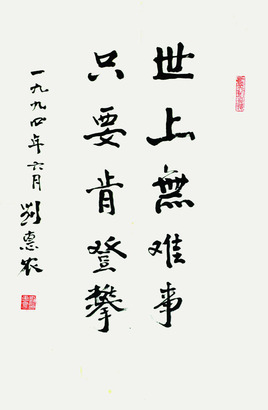 世上無难事
只要肯登攀
一九九四年六月
刘惠农